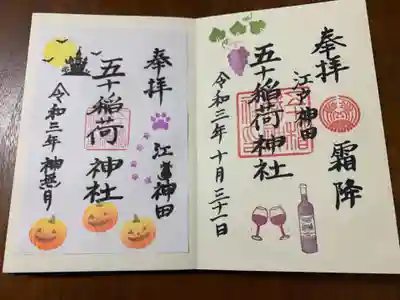 奉拝
霜降
江戸神田
五十稲荷神社
令和三年十月三十一日
奉拝
江戸神田
五十稲荷神社
令和三年 神無月